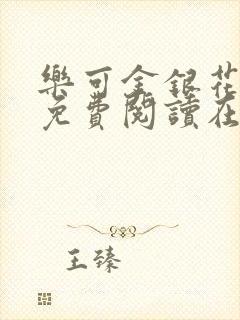 樂可金銀花
免費閱讀在
王臻